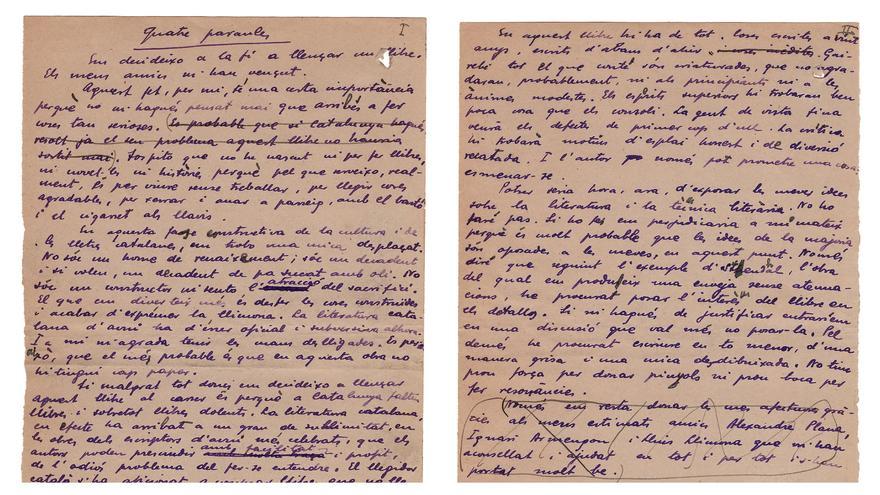 Quatre paraules
I
Em decideixo a la fi a llençar un llibre.
Els meus amics m'han vençut.
Aquest fet, per mi, té una certa importància
perquè no m'hagués pensat mai que arribés a fer
coses tan serioses. (Es probable que si Catalunya hagués
resolt ja el seu problema aquest llibre no hauria
sortit mai). Sospito que no he nascut ni per fe llibres,
ni novel·les ni històries, perquè pel que envejo, real-
ment, és per viure sense treballar, per llegir coses
agradables, per xerrar i anar a passeig, amb el bastó
i el cigarret als llavis.
En aquesta fase constructiva de la cultura i de
les lletres catalanes, em trobo una mica desplaçat.
No sóc un home de renaixement; sóc un decadent
i si volen, un decadent de pa sucat amb oli. No
sóc un constructor ni sento l'atracció del sacrifici.
El que em diverteix més és desfer les coses construïdes
i acabar d'exprémer la llimona. La literatura cata-
lana d'avui ha d'ésser oficial i subversiva alhora.
I a mi m'agrada tenir les mans deslligades. És per
això, que el més probable és que en aquesta obra no
hi tingui cap paper.
Si malgrat tot doncs em decideixo a llençar
aquest llibre al carrer és perquè a Catalunya falten
llibres i sobretot llibres dolents. La literatura catalana,
en efecte ha arribat a un grau de sublimitat, en
les obres dels escriptors d'avui més celebrats, que els
autors poden prescindir amb facilitat i profit,
de l'odiós problema del fer-se entendre. El llegidor
català s'ha aficionat a comprar llibre que no ll
II
En aquest llibre hi ha de tot. Coses escrites a vint
anys, escrits d'abans d'ahir i coses inèdites. Gai-
rebé tot el que conté són criaturades, que no agra-
daran, probablement, ni als principiants ni a les
ànimes modestes. Els esperits superiors hi trobaran ben
poca cosa que els consoli. La gent de vista fina
veurà els defectes de primer cop d'ull. La crítica
hi trobarà motius d'esplai honest i de diversió
relatada. I l'autor només pot prometre una cosa:
esmenar-se.
Potser seria hora, ara, d'exposar les meves idees
sobre la literatura i la tècnica literària. No ho
faré pas. Si ho fes em perjudicaria a mi mateix
perquè és molt probable que les idees de la majoria
són oposades a les meves, en aquest punt. Només
diré que seguint l'exemple d'Stendal, l'obra
del qual em produeix una enveja sense atenua-
cions, he procurat posar l'interès del llibre en
els detalls. Si m'hagués de justificar entraríem
en una discusió que val més no posar-la. Pel
demés, he procurat escriure en to menor, d'una
manera grisa i una mica desdibuixada. No tinc
prou força per donar pinyols ni prou boca per
fer ressonàncies.
(Només em resta donar les més afectuoses grà-
cies als meus estimats amics Alexandre Plana,
Ignasi Armengou i Lluis Llimona que m'han
aconsellat i ajudat en tot i per tot i s'han
portat molt be.)